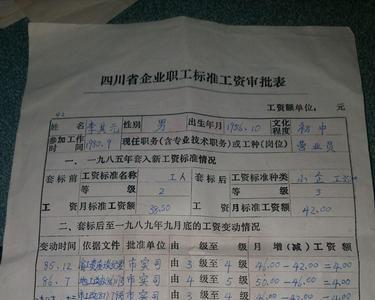 四川省企业职工标准工资审批表
工资额单位： 元
姓名 李其元 性别 男 出生年月 1956.10 文化程度 初中
参加工作时间 1980.9 现任职务(含专业技术职务)或工种(岗位) 营业员
一、一九八五年套入新工资标准情况
套标前 工资标准名称 工人 套标后 工资标准种类 小企
等级 2 等级 3
工资 月标准工资额 38.50 工资 月标准工资额 42.00
二、套标后至一九八九年九月底的工资变动情况
变动时间 依据文件 批准单位 由 级至 级 月增(减)工资额
85.12 市实司 由 3 级至 4 级 46.00-42.00=4.00
86.7 市实司 由 4 级至 5 级 50.00-46.00=4.00
市实司 由 级至 级 =4.00